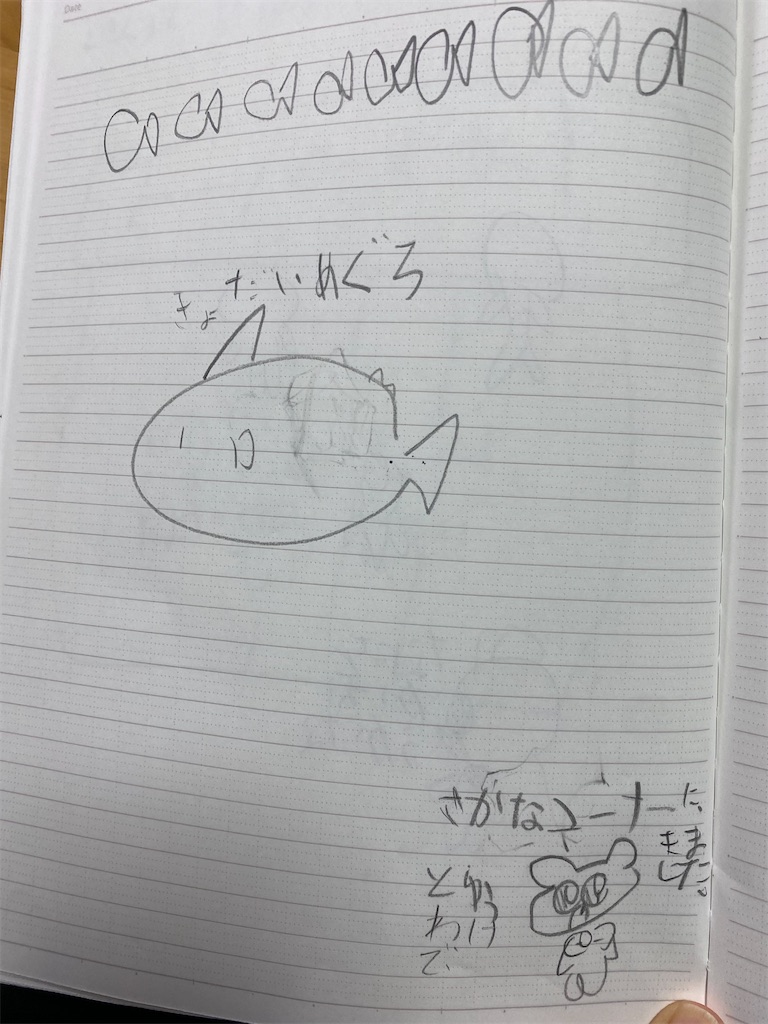 Date
きょだいめぐろ
さがなコーナーに
きま
した。
とゆう
わけ
で